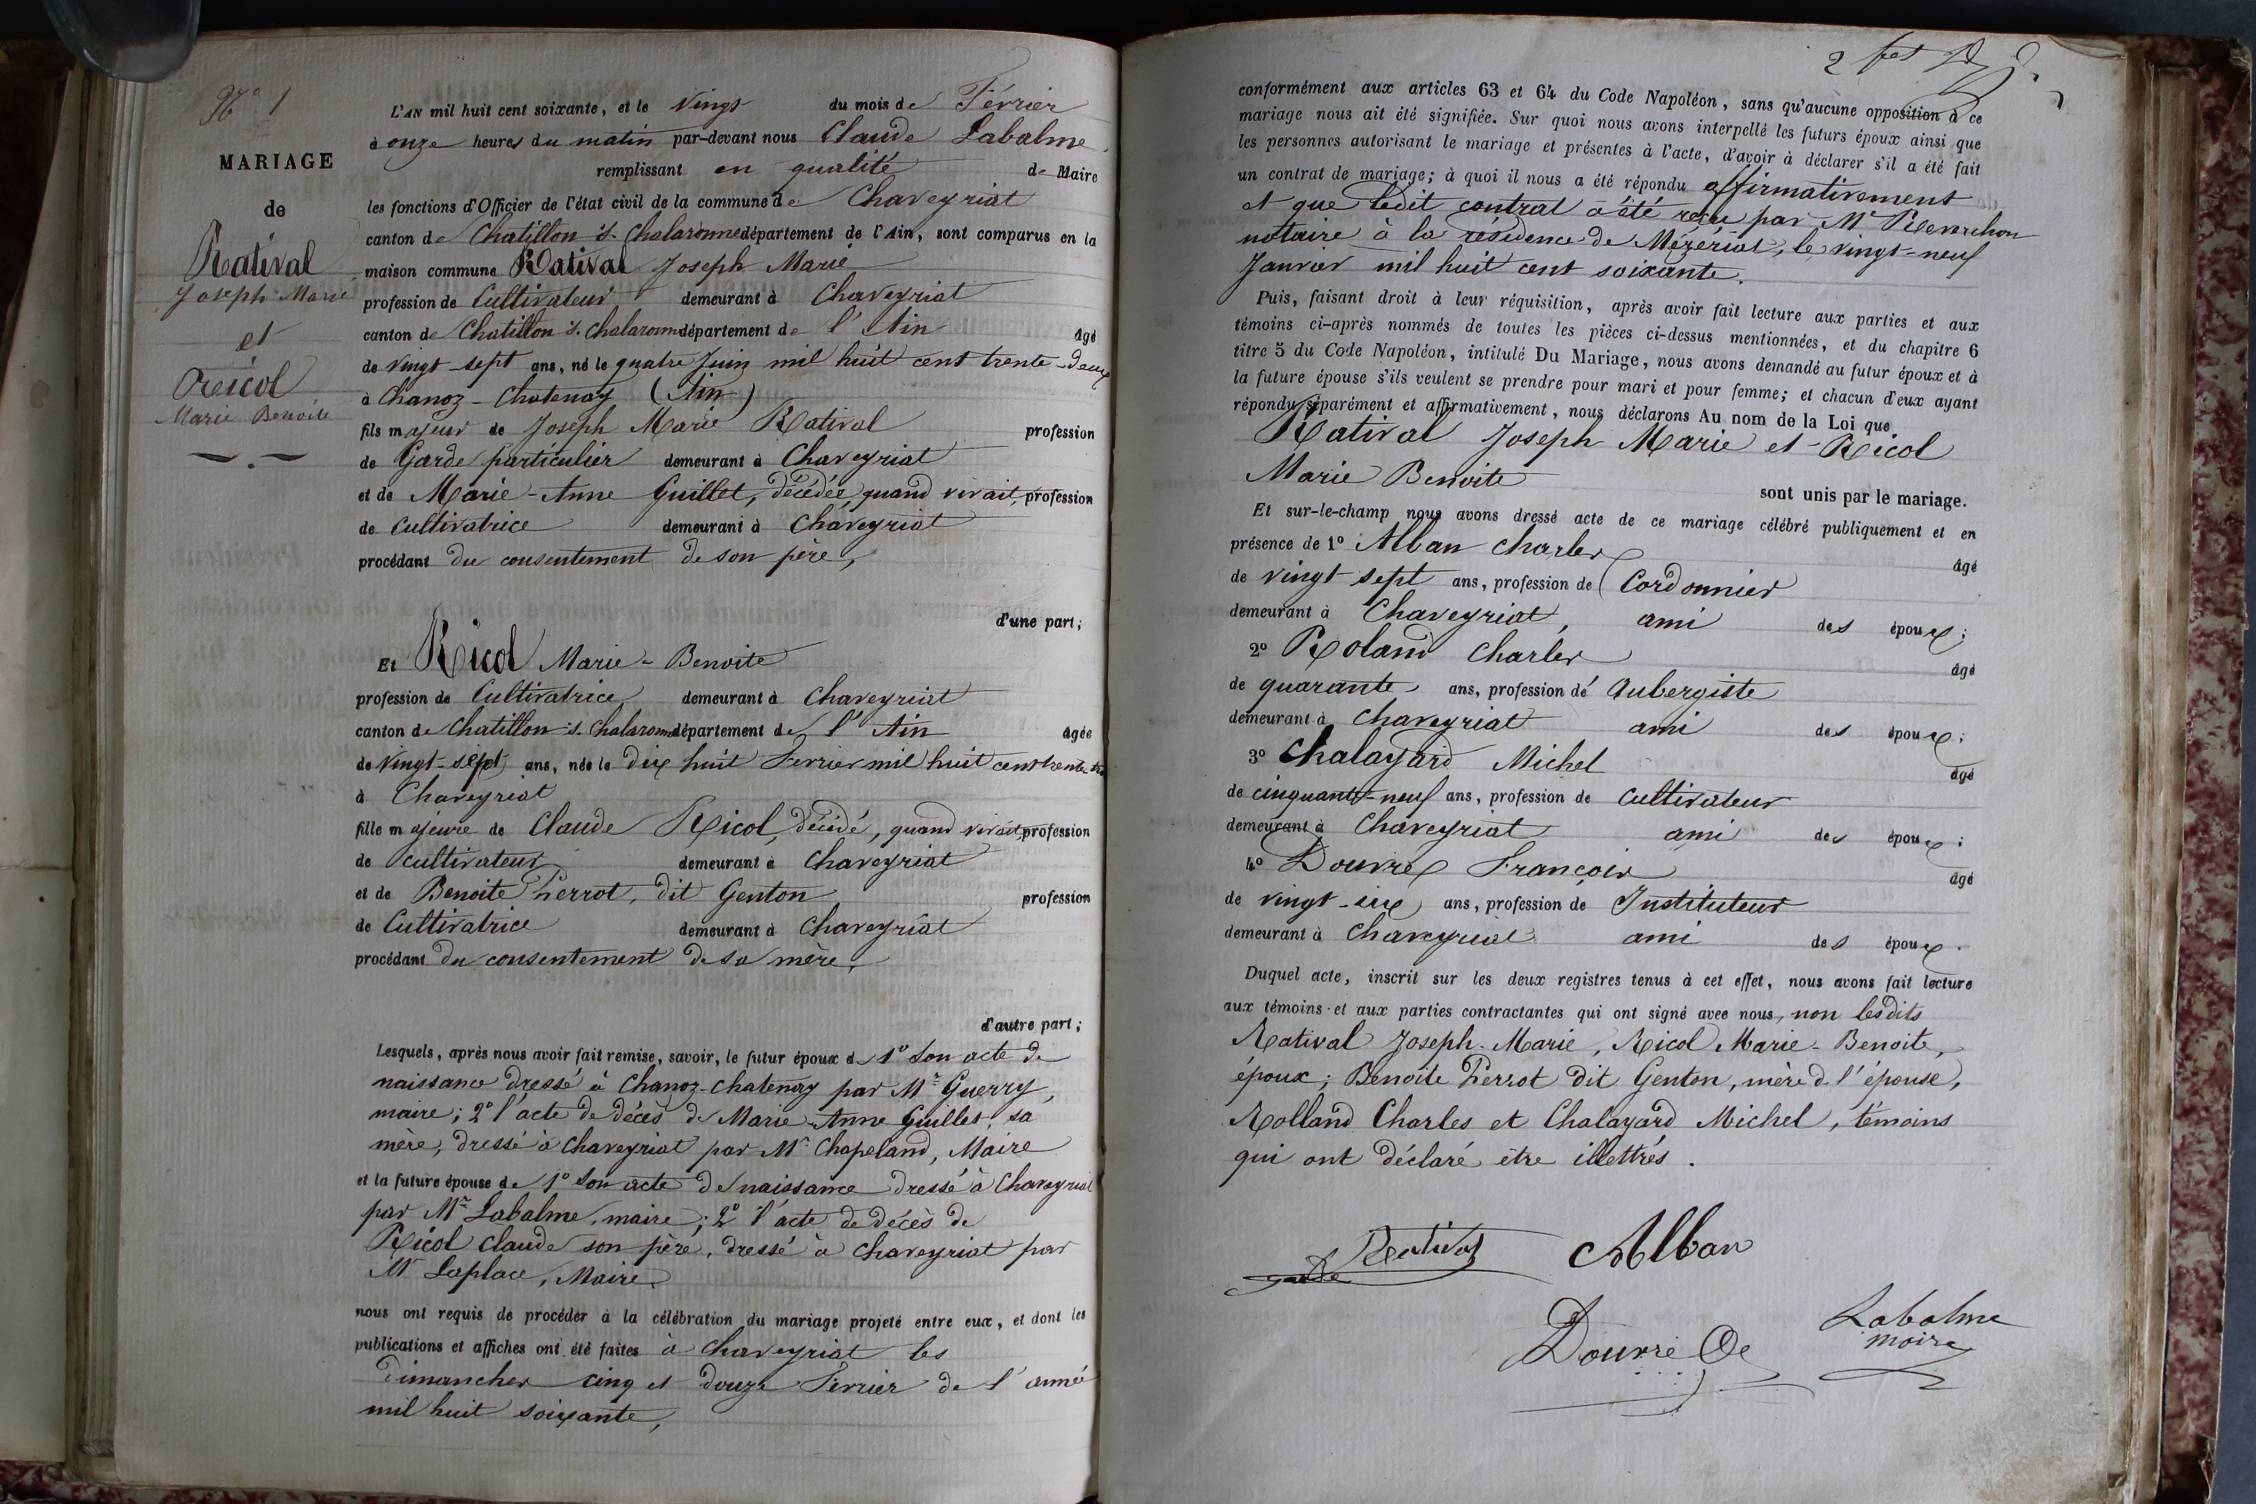 N° 1
MARIAGE
de
Ratival
Joseph Marie
et
Ricol
Marie Benoite
L'AN mil huit cent soixante, et le vingt du mois de Février
à onze heures du matin par-devant nous Claude Labalme,
remplissant en qualité de Maire
les fonctions d'Officier de l'état civil de la commune de Chaveyriat
canton de Chatillon s. Chalaronne département de l'Ain, sont comparus en la
maison commune Ratival Joseph Marie
profession de Cultivateur demeurant à Chaveyriat
canton de Chatillon s. Chalaronne département de l'Ain âgé
de vingt-sept ans, né le quatre Juin mil huit cent trente-deux
à Chanoz-Chatenay (Ain)
fils majeur de Joseph Marie Ratival profession
de Garde particulier demeurant à Chaveyriat
et de Marie-Anne Guillet, décédée, quand vivait, profession
de Cultivatrice demeurant à Chaveyriat
procédant du consentement de son père,
d'une part;
Et Ricol Marie-Benoite
profession de Cultivatrice demeurant à Chaveyriat
canton de Chatillon s. Chalaronne département de l'Ain âgée
de vingt-sept ans, née le dix huit Février mil huit cent trente
à Chaveyriat
fille majeure de Claude Ricol, décédé, quand vivait, profession
de cultivateur demeurant à Chaveyriat
et de Benoite Perrot, dit Genton profession
de Cultivatrice demeurant à Chaveyriat
procédant du consentement de sa mère,
d'autre part;
Lesquels, après nous avoir fait remise, savoir, le futur époux de 1° Son acte de
naissance dressé à Chanoz-Chatenay par Mr Guerry,
maire; 2° l'acte de décès de Marie-Anne Guillet, sa
mère, dressé à Chaveyriat par Mr Chapeland, Maire
et la future épouse de 1° Son acte de naissance dressé à Chaveyriat
par Mr Labalme, maire; 2° l'acte de décès de
Ricol Claude son père, dressé à Chaveyriat par
Mr Laplace, Maire.
nous ont requis de procéder à la célébration du mariage projeté entre eux, et dont les
publications et affiches ont été faites à Chaveyriat les
Dimanches cinq et douze Février de l'année
mil huit soixante,
conformément aux articles 63 et 64 du Code Napoléon, sans qu'aucune opposition à ce
mariage nous ait été signifiée. Sur quoi nous avons interpellé les futurs époux ainsi que
les personnes autorisant le mariage et présentes à l'acte, d'avoir à déclarer s'il a été fait
un contrat de mariage; à quoi il nous a été répondu affirmativement
et que ledit contrat a été reçu par Mr
notaire à la résidence de Mézériat, le vingt-neuf
Janvier mil huit cent soixante.
Puis, faisant droit à leur réquisition, après avoir fait lecture aux parties et aux
témoins ci-après nommés de toutes les pièces ci-dessus mentionnées, et du chapitre 6
titre 5 du Code Napoléon, intitulé Du Mariage, nous avons demandé au futur époux et à
la future épouse s'ils veulent se prendre pour mari et pour femme; et chacun d'eux ayant
répondu séparément et affirmativement, nous déclarons Au nom de la Loi que
Ratival Joseph Marie et Ricol
Marie Benoite sont unis par le mariage.
Et sur-le-champ nous avons dressé acte de ce mariage célébré publiquement et en
présence de 1° Alban Charles âgé
de vingt-sept ans, profession de Cordonnier
demeurant à Chaveyriat, ami des époux;
2° Roland Charles âgé
de quarante ans, profession de Aubergiste
demeurant à Chaveyriat ami des époux;
3° Chalayard Michel âgé
de cinquante-neuf ans, profession de Cultivateur
demeurant à Chaveyriat ami des époux;
4° Douvre François âgé
de vingt-six ans, profession de Instituteur
demeurant à Chaveyriat ami des époux.
Duquel acte, inscrit sur les deux registres tenus à cet effet, nous avons fait lecture
aux témoins et aux parties contractantes qui ont signé avec nous, non lesdits
Ratival Joseph-Marie, Ricol Marie-Benoite,
époux; Benoite Perrot dit Genton, mère de l'épouse,
Rolland Charles et Chalayard Michel, témoins
qui ont déclaré être illettrés.
Rativat Alban
garde
Labalme
maire
Douvre